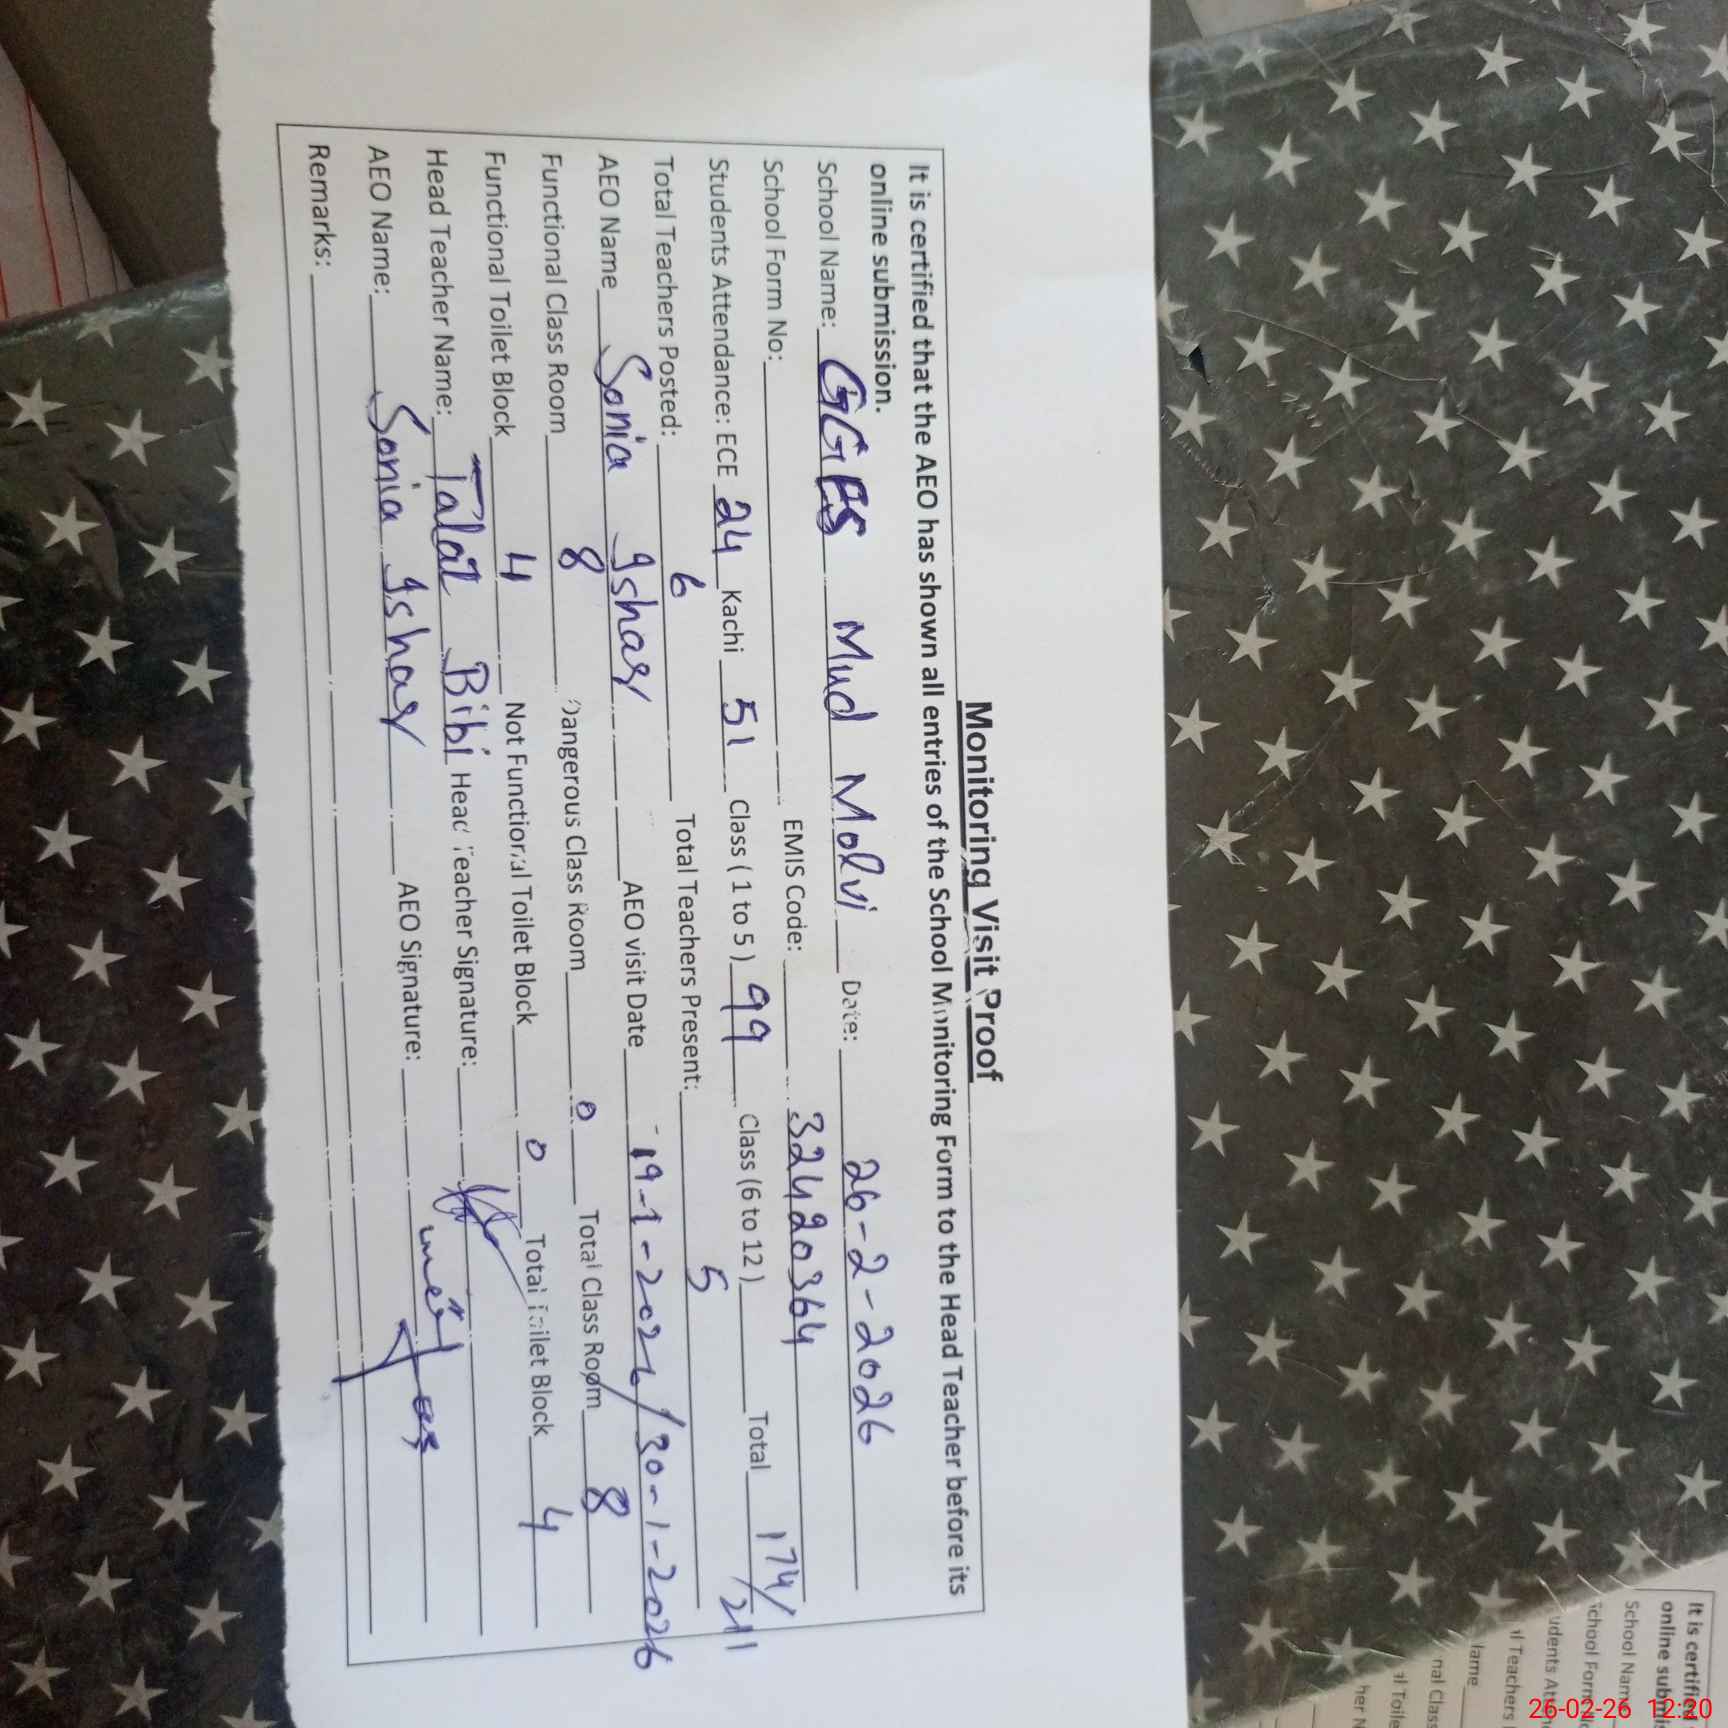 Monitoring Visit Proof
It is certified that the AEO has shown all entries of the School Monitoring Form to the Head Teacher before its
online submission.
School Name: GGES Mud Molvi Date: 26-2-2026
School Form No: EMIS Code: 32420364
Students Attendance: ECE 24 Kachi 51 Class ( 1 to 5 ) 99 Class (6 to 12 ) Total 174/211
Total Teachers Posted: 6 Total Teachers Present: 5
AEO Name Sonia Ishaq AEO visit Date 19-1-2026/30-1-2026
Functional Class Room 8 Dangerous Class Room 0 Total Class Room 8
Functional Toilet Block 4 Not Functional Toilet Block 0 Total Toilet Block 4
Head Teacher Name: Talat Bibi Head Teacher Signature:
AEO Name: Sonia Ishaq AEO Signature:
Remarks:
It is certified
online submi
School Name
School Form
udents At
al Teachers
lame
nal Class
al Toile
her N
26-02-26 12:20